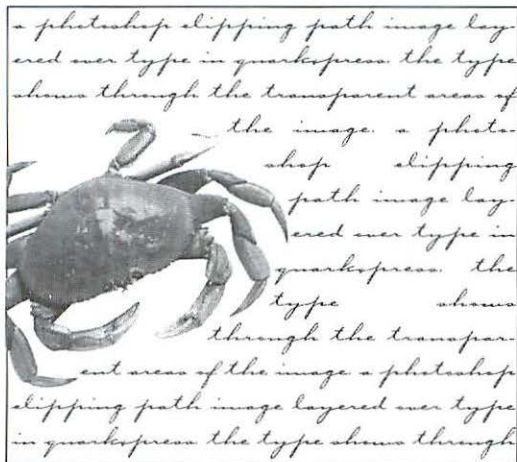 a photoshop clipping path image lay-
ered over type in quarkxpress. the type
shows through the transparent areas of
the image. a photo-
shop clipping
path image lay-
ered over type in
quarkxpress. the
type shows
through the transpar-
ent areas of the image. a photoshop
clipping path image layered over type
in quarkxpress. the type shows through